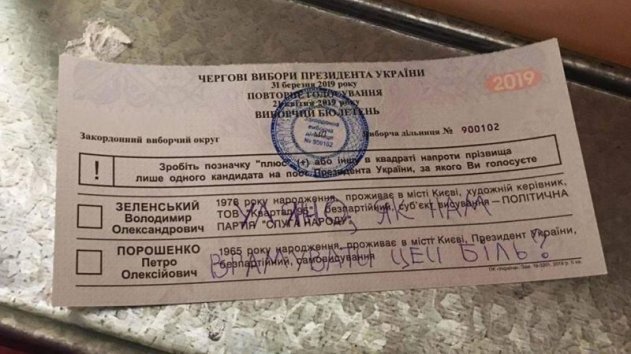 ЧЕРГОВІ ВИБОРИ ПРЕЗИДЕНТА УКРАЇНИ
31 березня 2019 року
2019
ПОВТОРНЕ ГОЛОСУВАННЯ
21 квітня 2019 року
ВИБОРЧИЙ БЮЛЕТЕНЬ
Закордонний виборчий округ
Закордонна виборча дільниця № 900102
Виборча дільниця № 900102
! Зробіть позначку "плюс" (+) або іншу в квадраті напроти прізвища
лише одного кандидата на пост Президента України, за якого Ви голосуєте
ЗЕЛЕНСЬКИЙ
Володимир
Олександрович
1978 року народження, проживає в місті Києві, художній керівник,
ТОВ "Квартал 95", безпартійний, суб'єкт висування – ПОЛІТИЧНА
ПАРТІЯ "СЛУГА НАРОДУ"
ЯК НАМ
ПОРОШЕНКО
Петро
Олексійович
1965 року народження, проживає в місті Києві, Президент України,
безпартійний, самовисування
ВГАМУВАТИ ЦЕЙ БІЛЬ!?